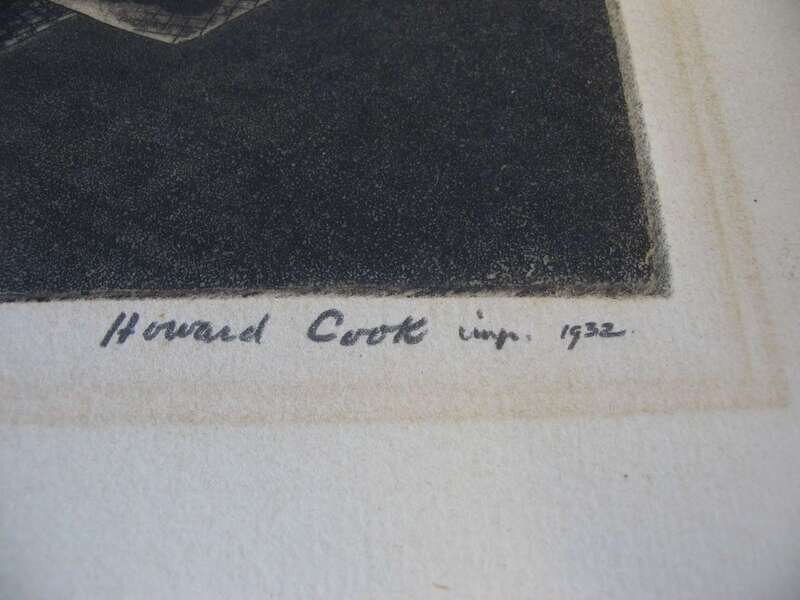 Howard Cook imp. 1932.